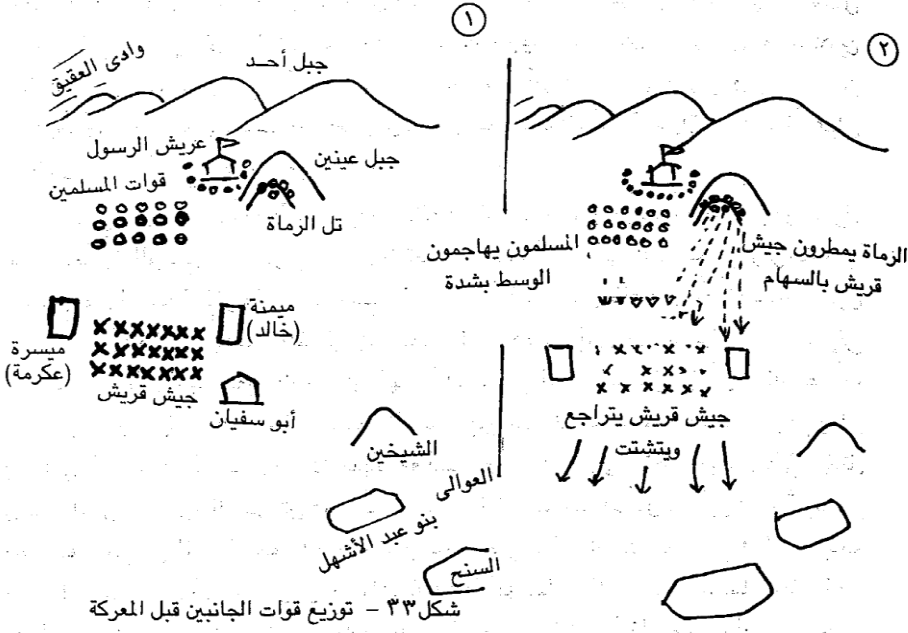 ١
وادى العقيق
جبل أحـد
عريش الرسول
جبل عينين
قوات المسلمين
تل الرماة
ميمنة
(خالد)
ميسرة
(عكرمة)
جيش قريش
أبو سفيان
الشيخين
العوالى
بنو عبد الأشهل
السنح
٢
المسلمون يهاجمون
الوسط بشدة
الرماة يمطرون جيش
قريش بالسهام
جيش قريش يتراجع
ويتشتت
شكل ٣٣ – توزيع قوات الجانبين قبل المعركة